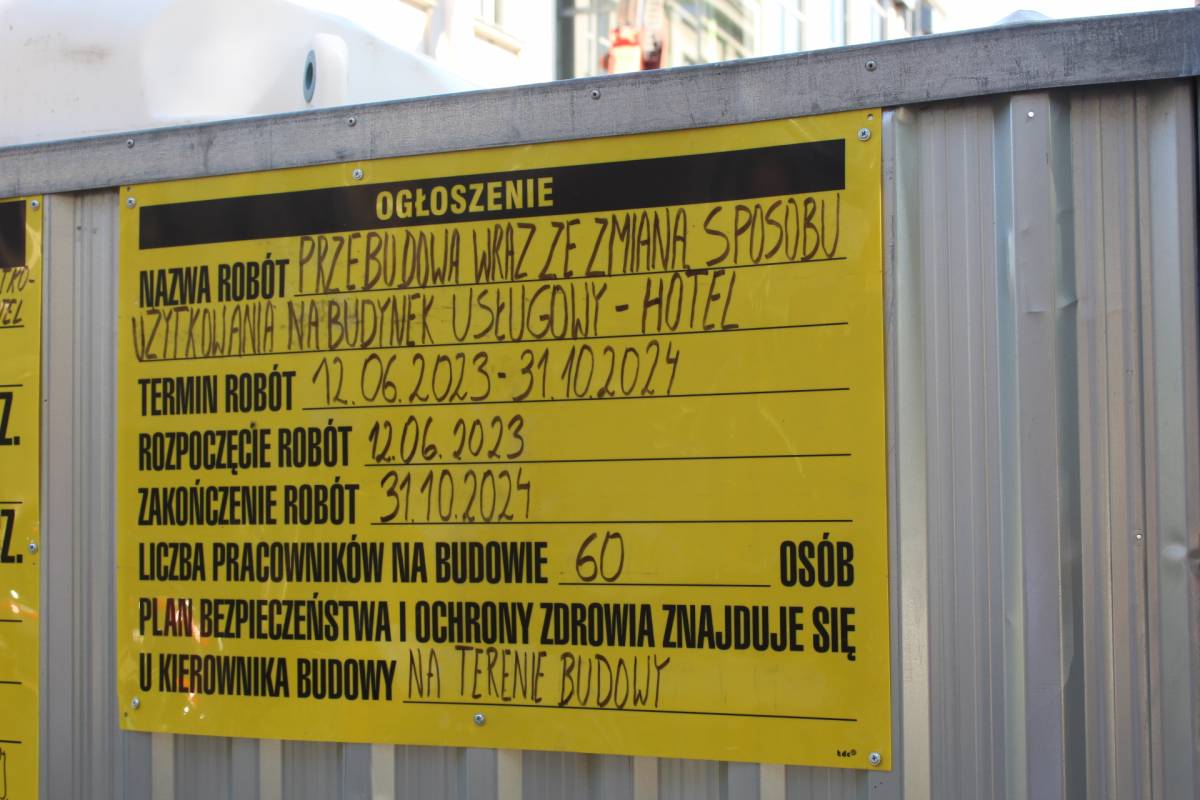 OGŁOSZENIE
NAZWA ROBÓT PRZEBUDOWA WRAZ ZE ZMIANĄ SPOSOBU
UŻYTKOWANIA NA BUDYNEK USŁUGOWY - HOTEL
TERMIN ROBÓT 12.06.2023 - 31.10.2024
ROZPOCZĘCIE ROBÓT 12.06.2023
ZAKOŃCZENIE ROBÓT 31.10.2024
LICZBA PRACOWNIKÓW NA BUDOWIE 60 OSÓB
PLAN BEZPIECZEŃSTWA I OCHRONY ZDROWIA ZNAJDUJE SIĘ
U KIEROWNIKA BUDOWY NA TERENIE BUDOWY
tdc®
Z.
Z.